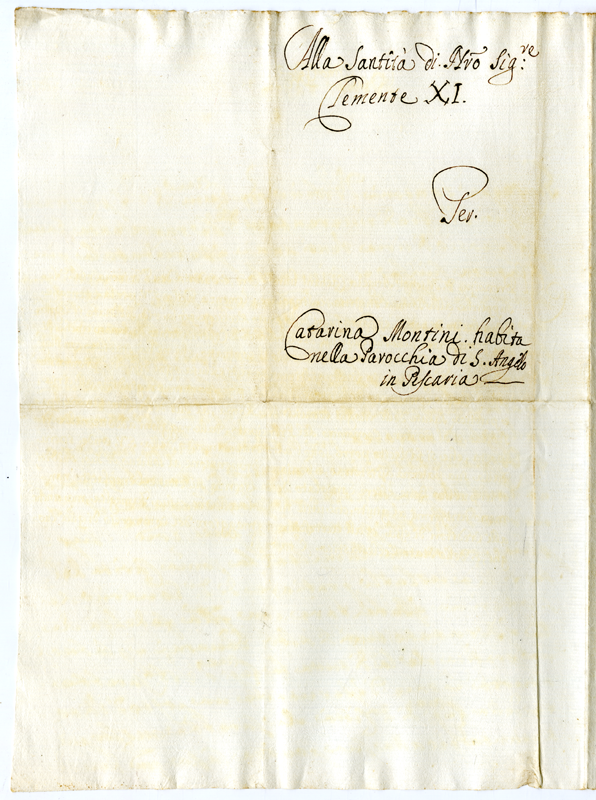 Alla Santità di Nro Sig:re
Clemente XI.
Per.
Catarina Montini. habita
nella Parocchia di S. Angelo
in Pescaria